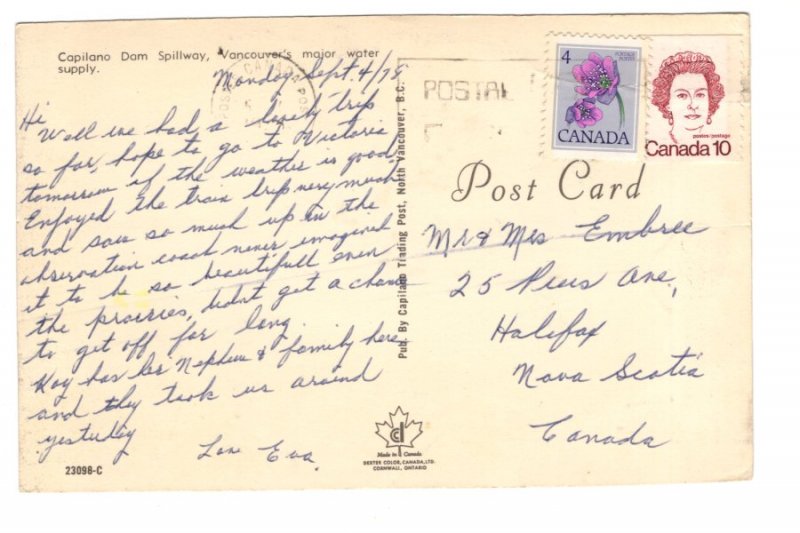 Capilano Dam Spillway, Vancouver's major water
supply.
Monday Sept. 4/78
Hi
Well we had a lovely trip
so far, hope to go to Victoria
tomorrow if the weather is good,
Enjoyed the train trip very much
and saw so much up in the
observation coach never imagined
it to be so beautifull even
the prairies, didnt get a chance
to get off for long.
Kay has her Nephew & family here
and they took us around
yesterday
Love Eva.
23098-C
Pub. By Capilano Trading Post, North Vancouver, B.C.
POSTAL
4
POSTAGE
POSTES
CANADA
postes/postage
Canada 10
Post Card
Mr & Mrs Embree
25 Pius Ave,
Halifax
Nova Scotia
Canada
Made in Canada
DEXTER COLOR, CANADA, LTD.
CORNWALL, ONTARIO